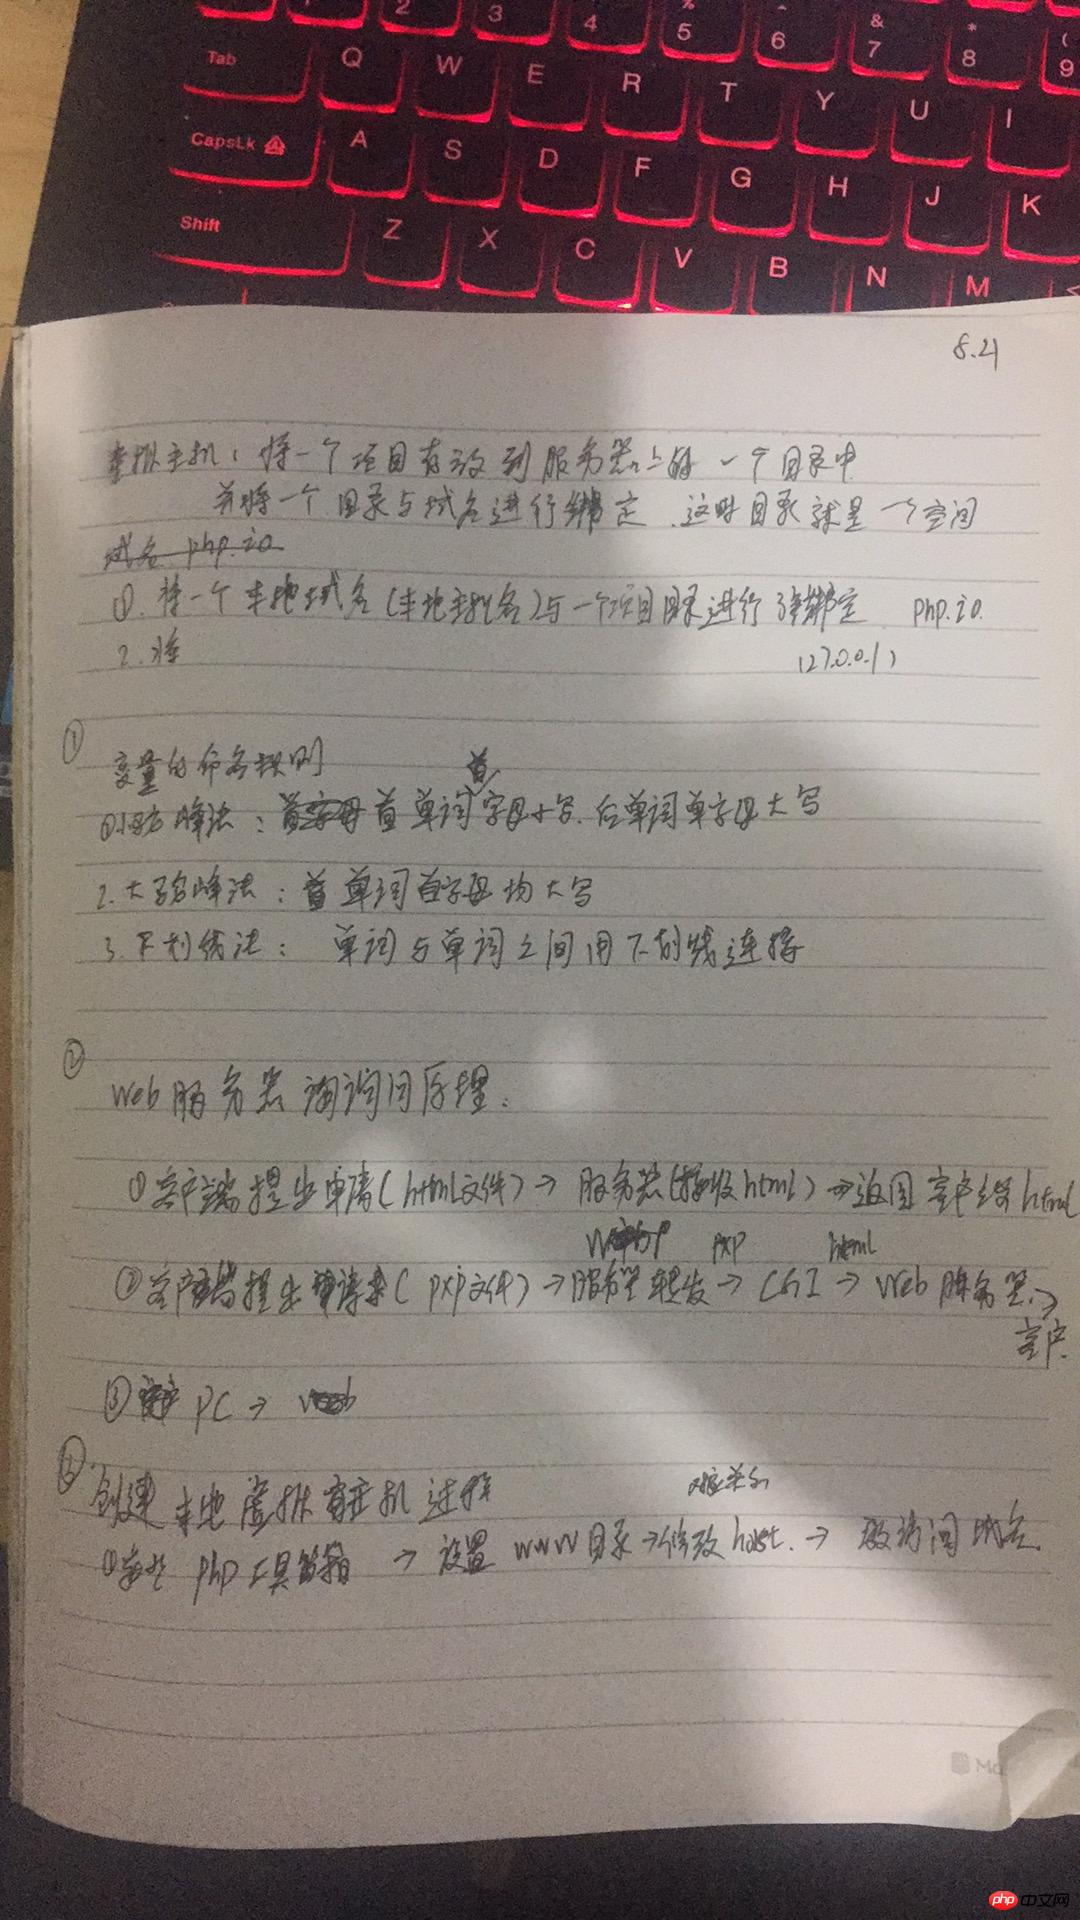 2 3 4 % 5 ^ 6 & 7 * 8 ( 9
Tab Q W E R T Y U I
CapsLk A S D F G H J K
Shift Z X C V B N M <
8.21
虚拟主机: 将一个项目存放到服务器上的一个目录中
并将一个目录与域名进行绑定. 这时目录就是一个空间
域名 php.io
①. 将一个本地域名(本地主机名)与一个项目目录进行绑定 php.io.
2. 将 (127.0.0.1)
① 变量的命名规则
首
①. 峰法: 首字母 首单词字母小写. 后单词单字母大写
2. 大驼峰法: 首单词首字母均大写
3. 下划线法: 单词与单词之间用下划线连接
② Web服务器 访问原理:
①客户端提出申请(html文件)→ 服务器(接收html)→返回客户端html
pxp html
②客户端提出请求(pxp文件)→服务器转发→CGI→Web服务器→
客户.
③ PC → web
③ 创建本地虚拟主机过程
① php工具箱 → 设置www目录→修改host. → 访问域名
Ma
php 中文网